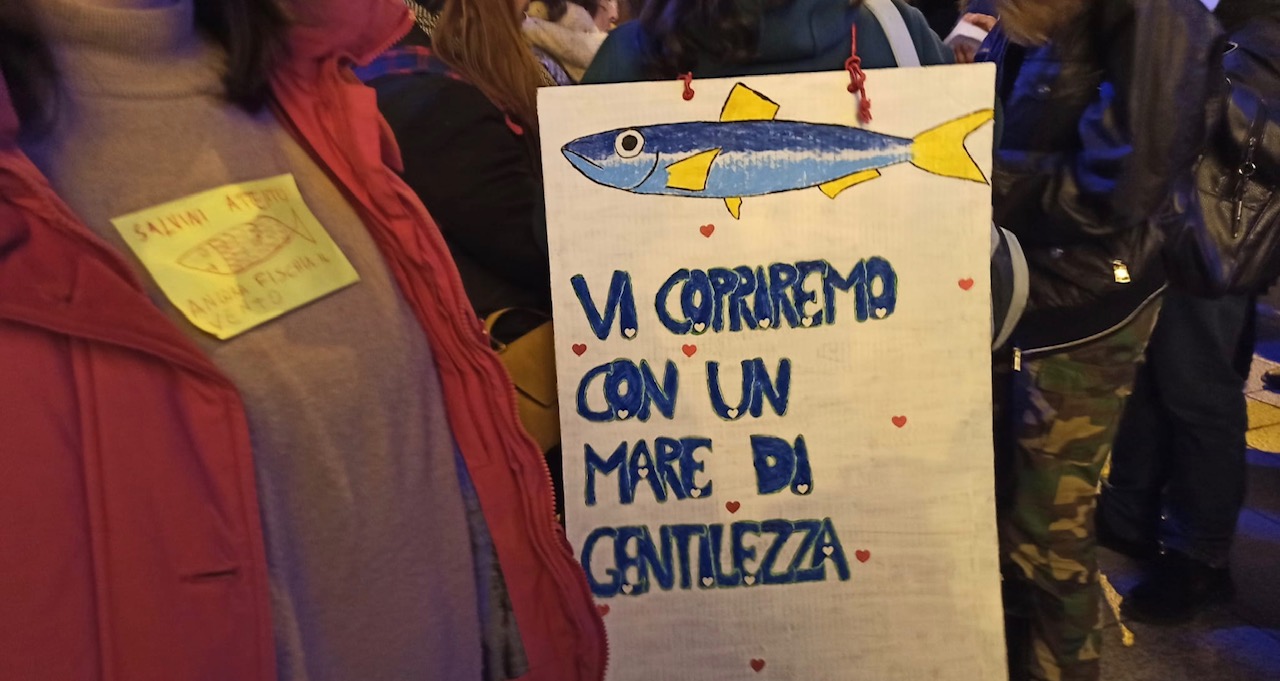 SALVINI ATENTO
ANCORA FISCHIA IL
VENTO
VI COPRIREMO
CON UN
MARE DI
GENTILEZZA